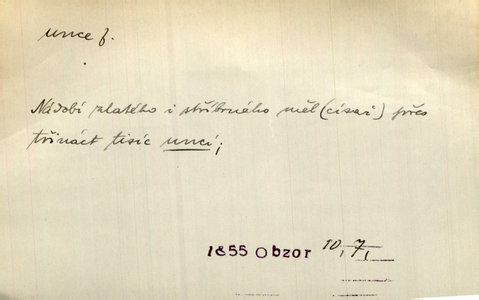 unce f.
Nádobí zlatého i stříbrného měl (císař) přes
třináct tisíc uncí;
1855 Obzor 10, 7,